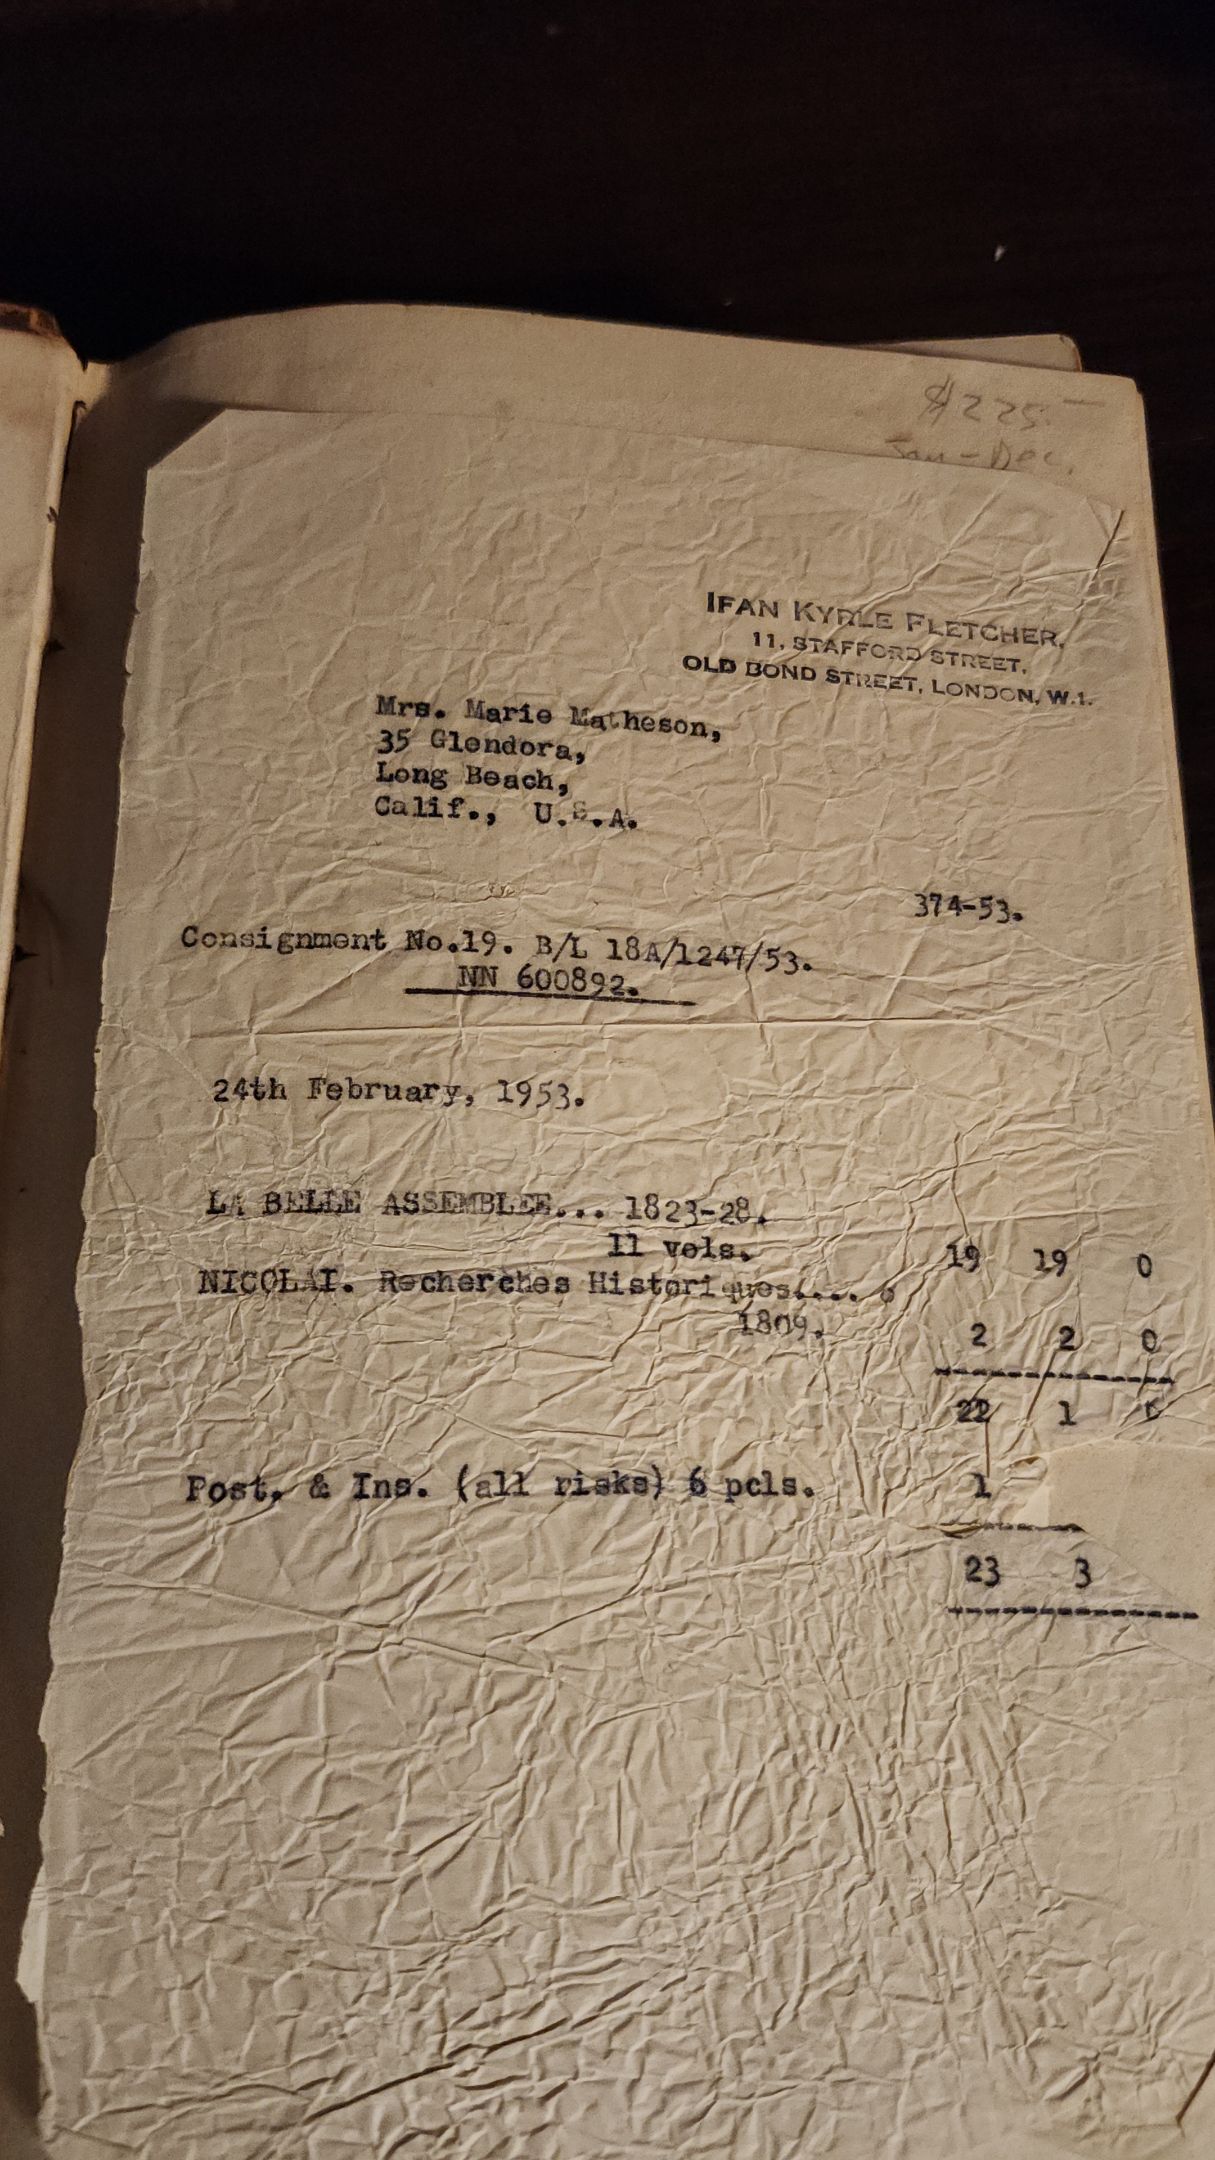 $225.—
Jan - Dec.
IFAN KYRLE FLETCHER,
11, STAFFORD STREET,
OLD BOND STREET, LONDON, W.1.
Mrs. Marie Matheson,
35 Glendora,
Long Beach,
Calif., U.S.A.
374-53.
Consignment No.19. B/L 18A/1247/53.
NN 600892.
24th February, 1953.
LA BELLE ASSEMBLEE... 1823-28.
11 vols. 19 19 0
NICOLAI. Recherches Historiques....
1809. 2 2 0
22 1
Post. & Ins. (all risks) 6 pcls. 1
23 3